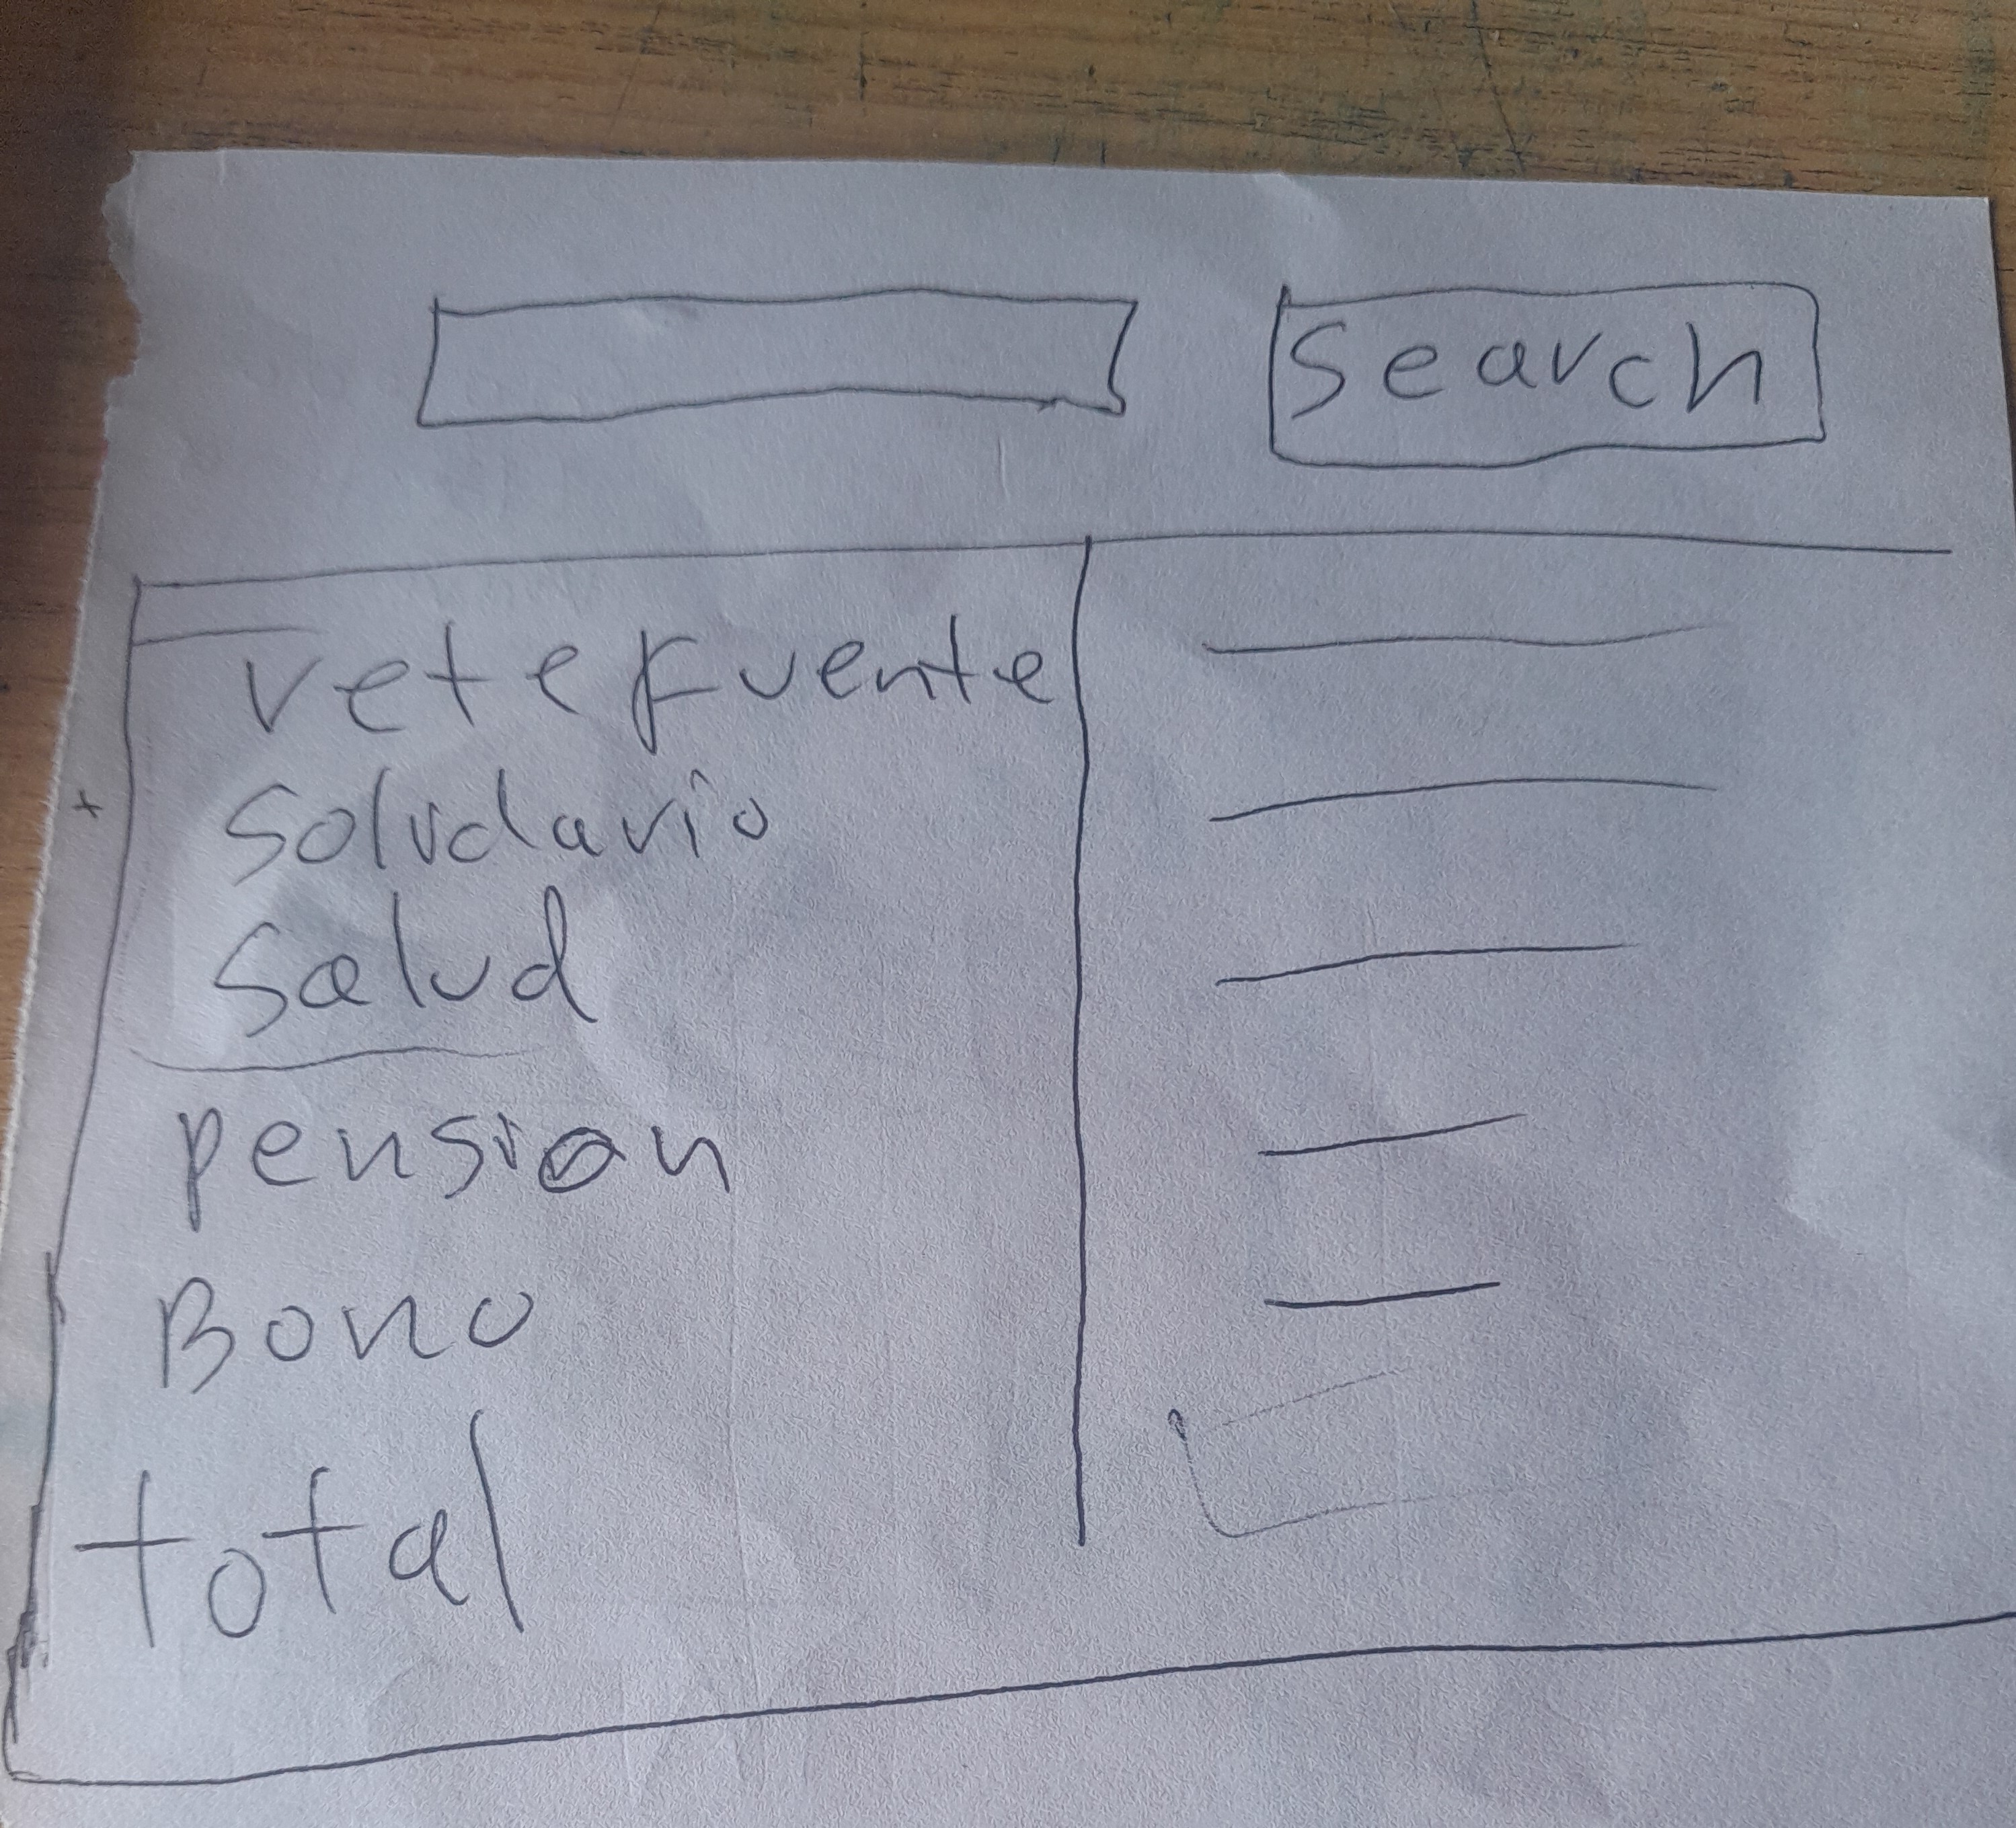 Search
retefuente
Soludario
Salud
pension
Bono
total